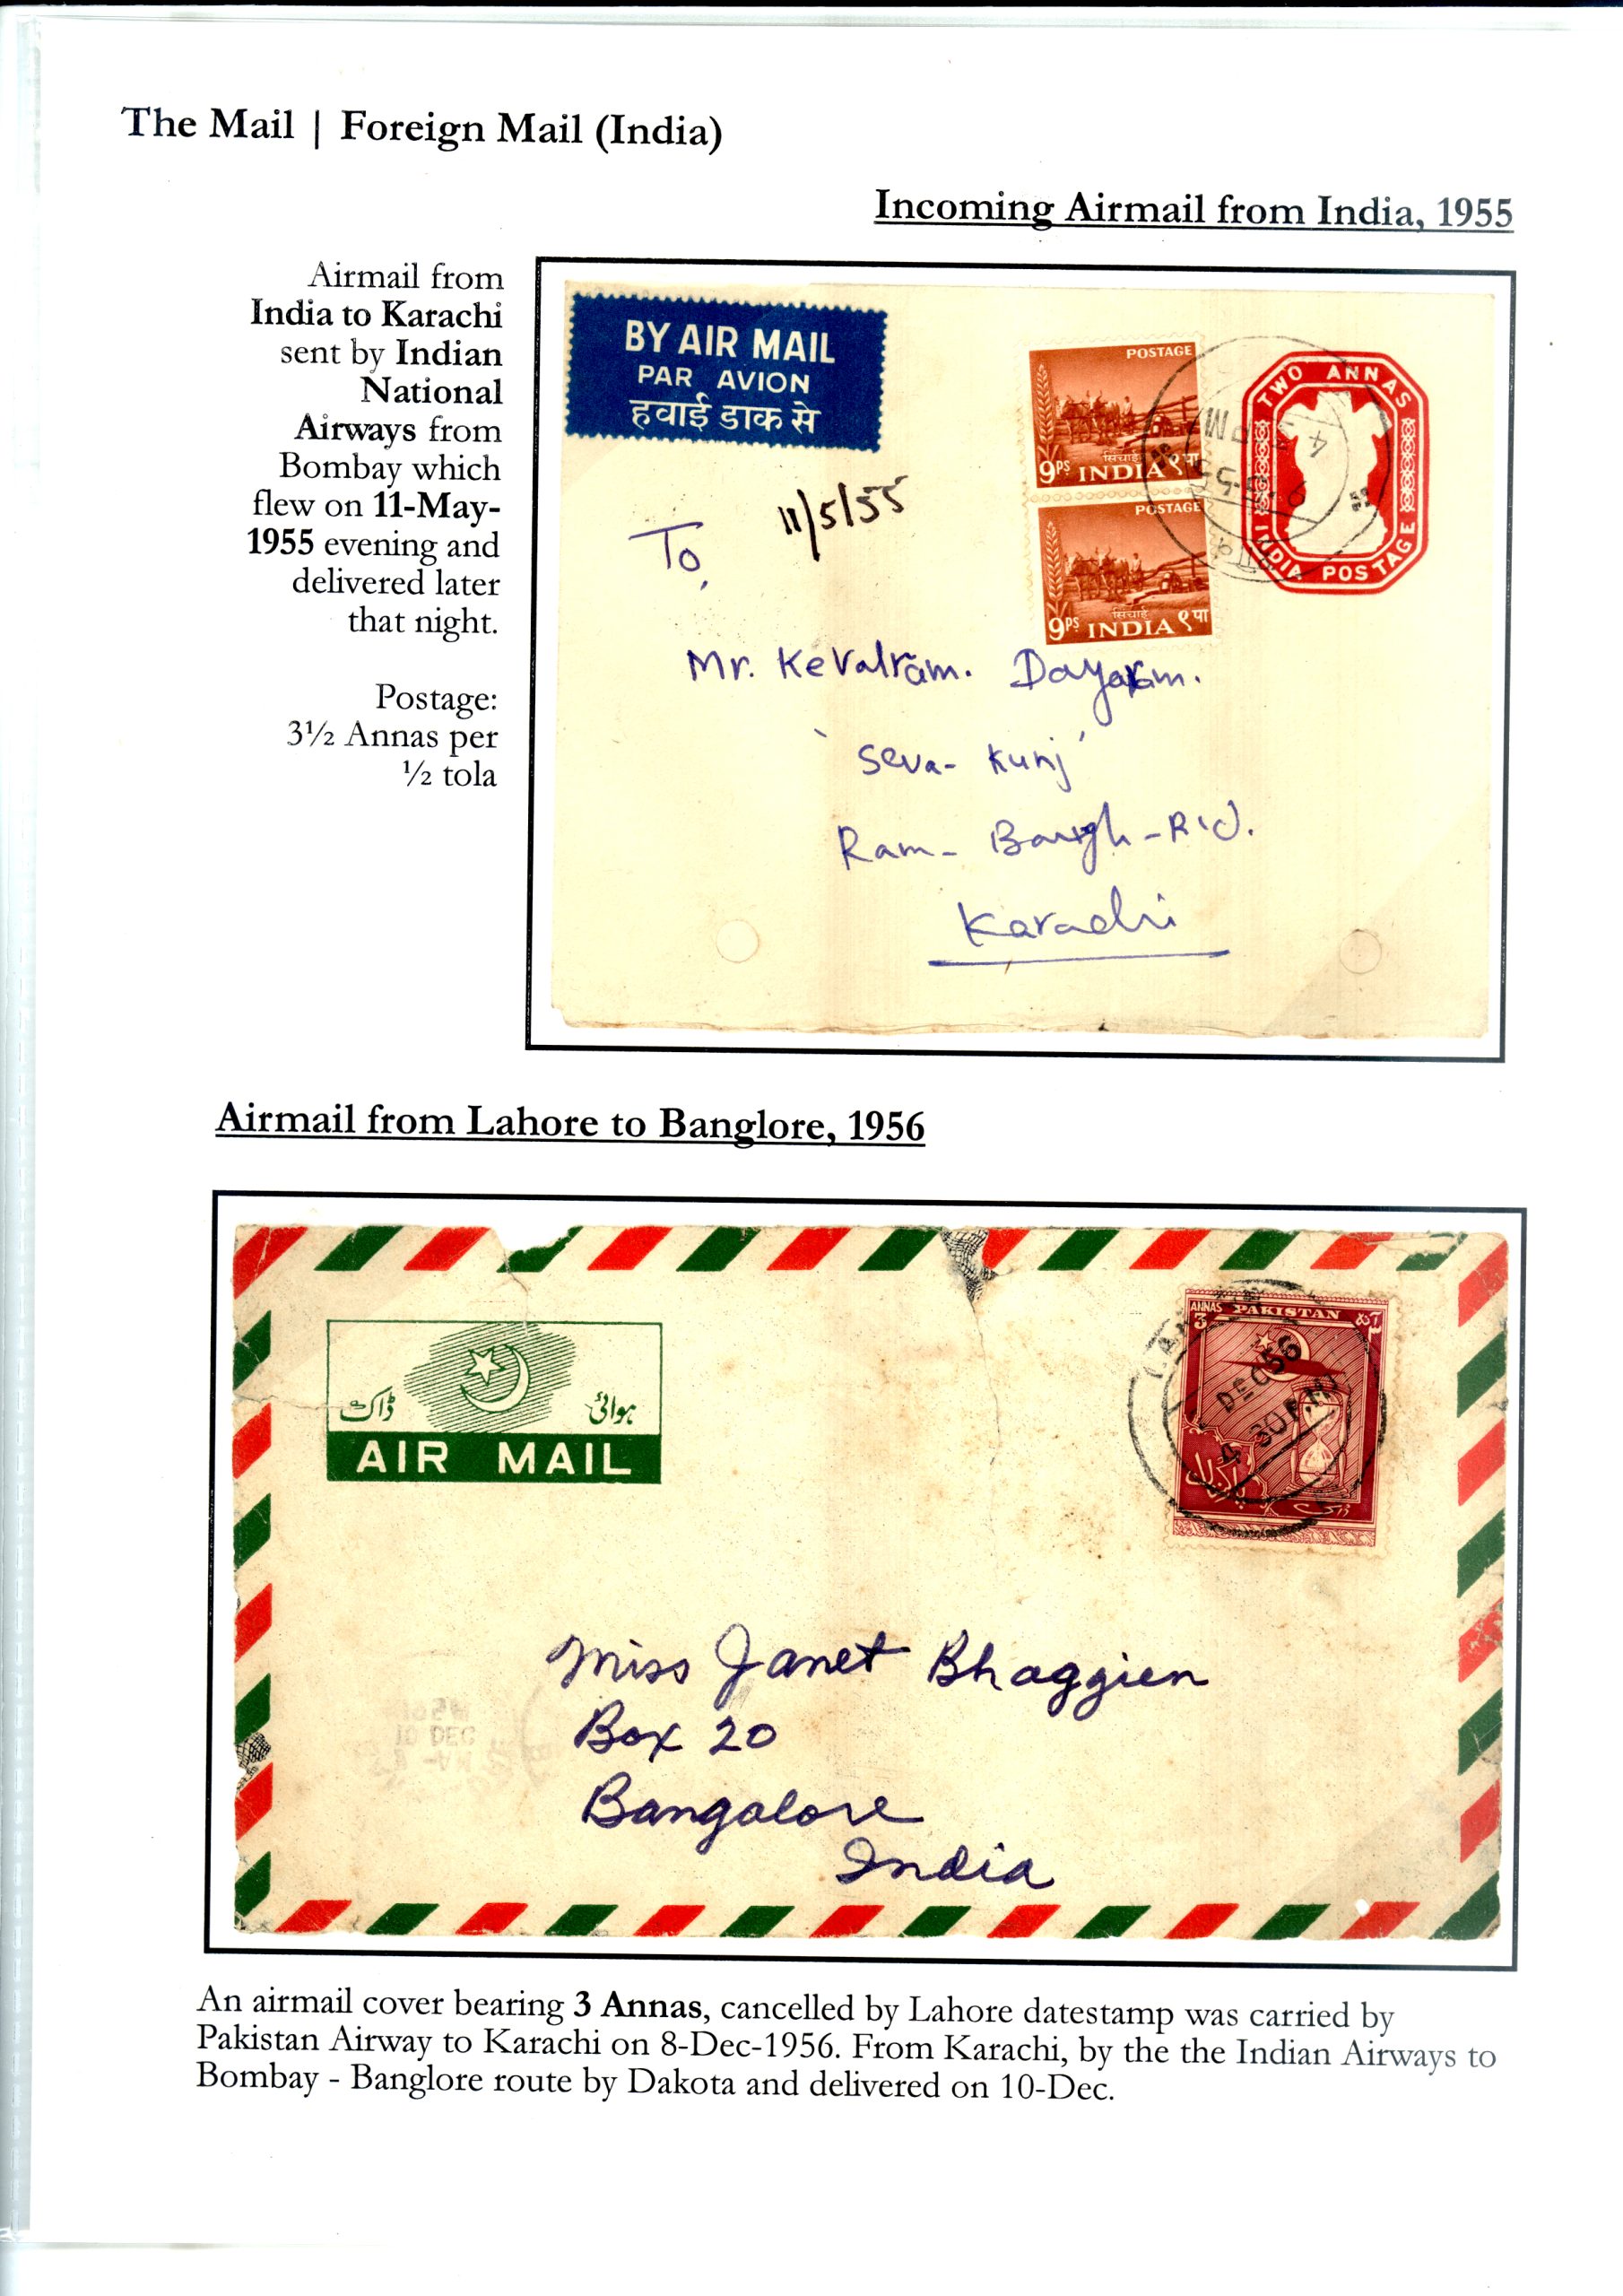 The Mail | Foreign Mail (India)
Incoming Airmail from India, 1955
Airmail from
India to Karachi
sent by Indian
National
Airways from
Bombay which
flew on 11-May-
1955 evening and
delivered later
that night.
Postage:
3½ Annas per
½ tola
BY AIR MAIL
PAR AVION
हवाई डाक से
POSTAGE
सिंचाई
9PS INDIA ९ पा
POSTAGE
सिंचाई
9PS INDIA ९ पा
TWO ANNAS
INDIA POSTAGE
11/5/55
To,
Mr. Kevalram. Dayaram.
'Seva-Kunj'
Ram-Baugh-Rd.
Karachi
Airmail from Lahore to Banglore, 1956
ہوائی ڈاک
AIR MAIL
ANNAS PAKISTAN
3 ٣
DEC 56
4 30 P.M
پاکستان
Miss Janet Bhaggien
Box 20
Bangalore
India
10 DEC
An airmail cover bearing 3 Annas, cancelled by Lahore datestamp was carried by
Pakistan Airway to Karachi on 8-Dec-1956. From Karachi, by the the Indian Airways to
Bombay - Banglore route by Dakota and delivered on 10-Dec.